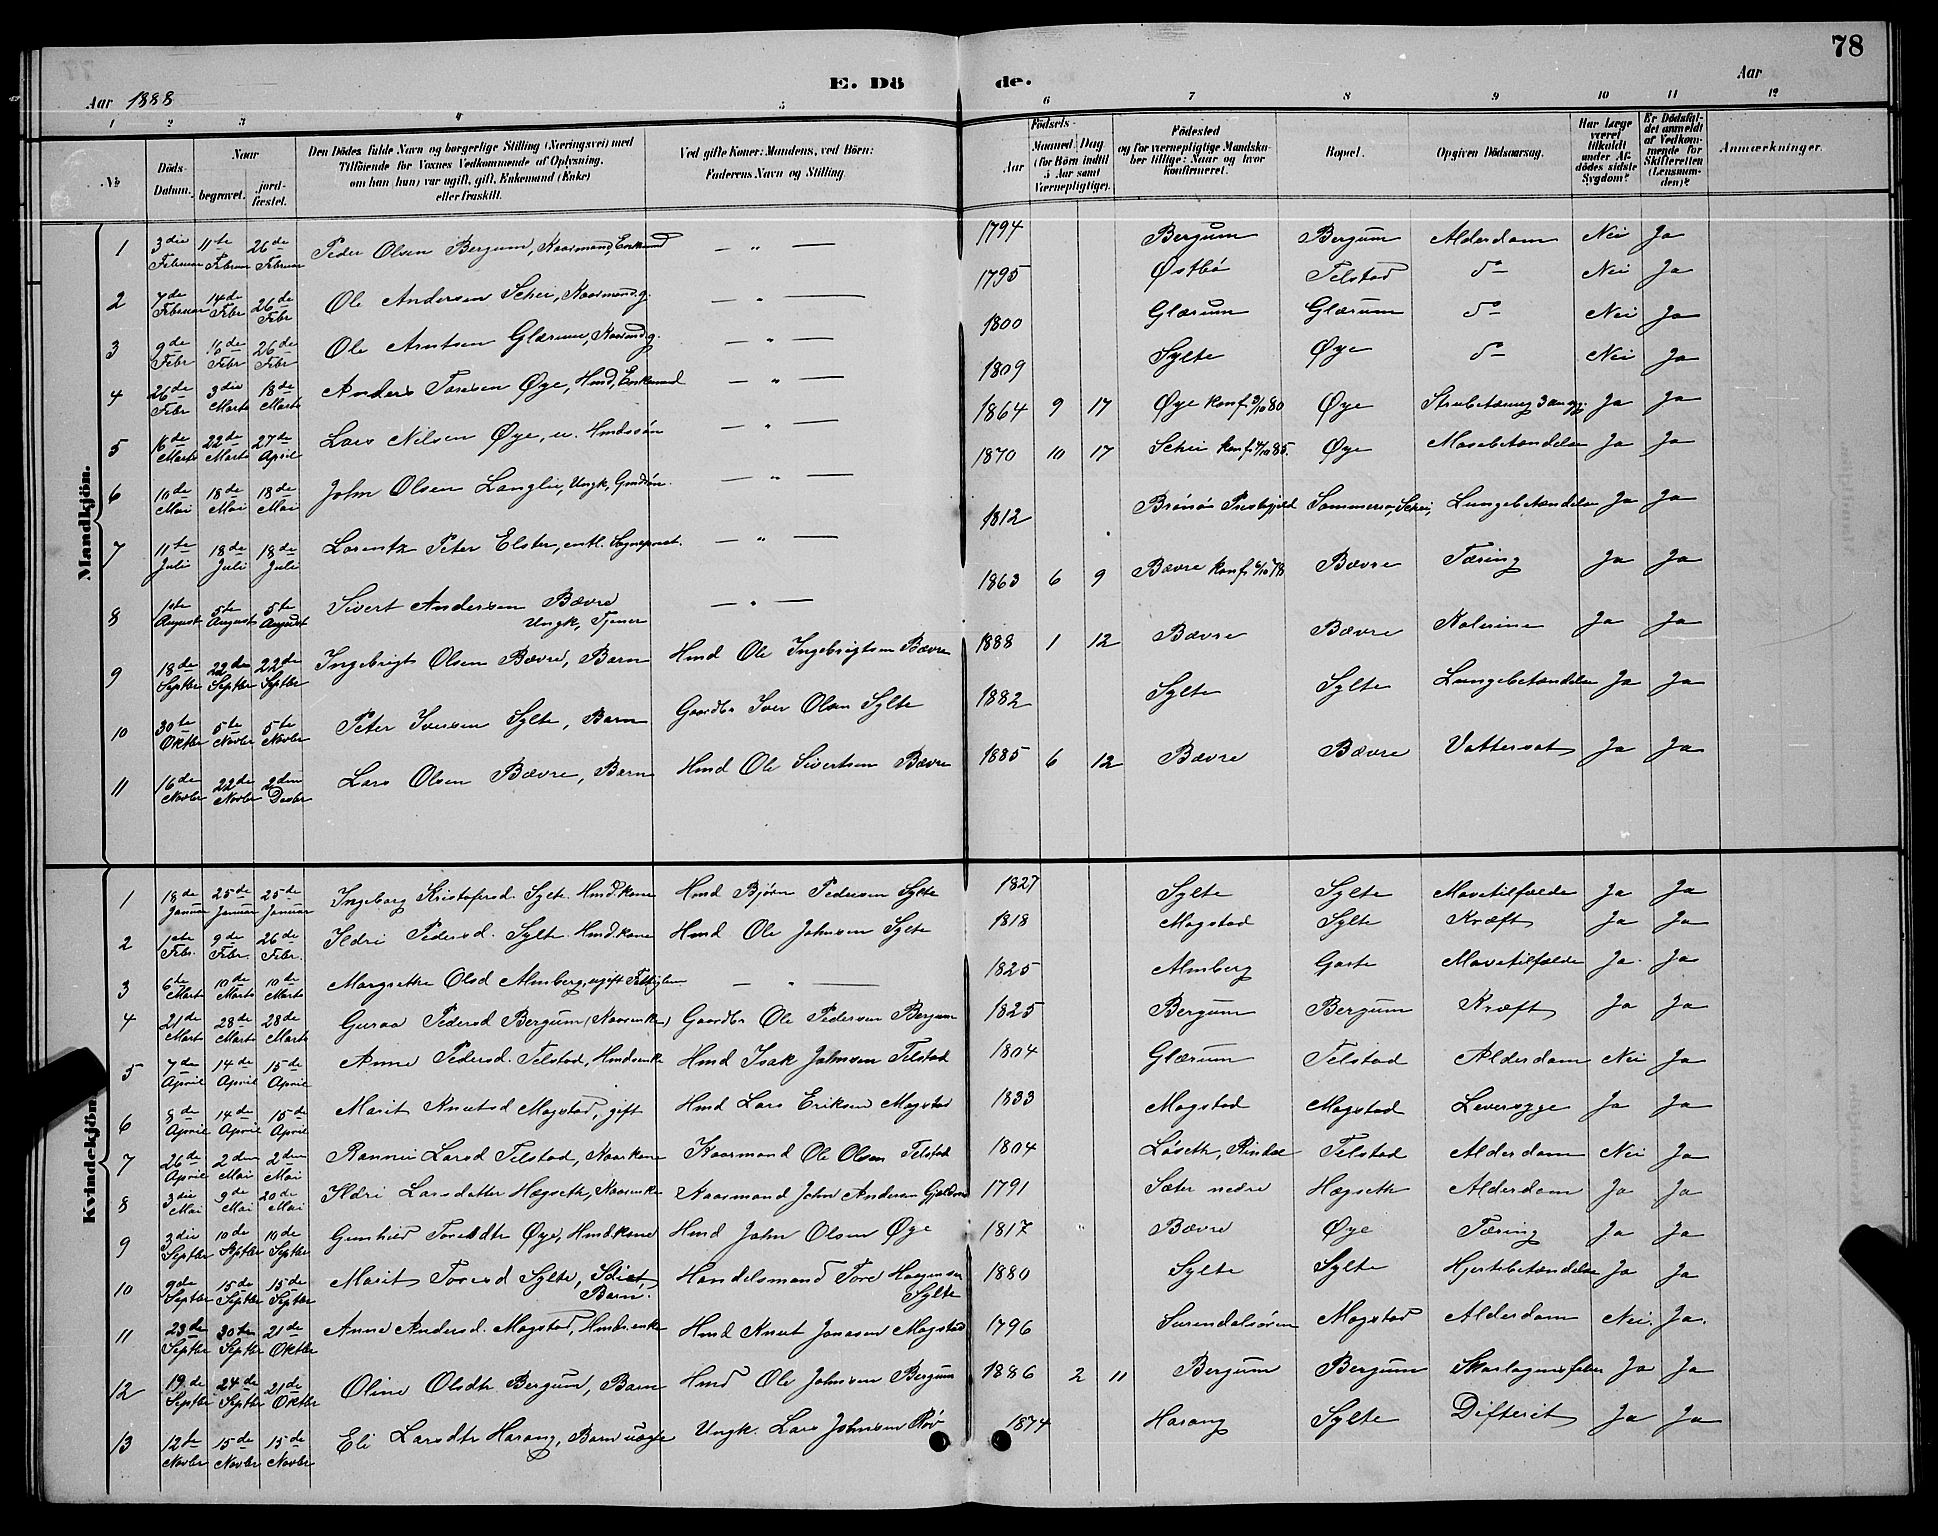 78
E. Dö de.
Aar 1888 Aar
1 2 3 4 5 6 7 8 9 10 11 12
№ Döds-Datum. Naar begravet. jordfæstet. Den Dödes fulde Navn og borgerlige Stilling (Næringsvei) med Tilföiende for Voxnes Vedkommende af Oplysning, om han (hun) var ugift, gift, Enkemand (Enke) eller fraskilt. Ved gifte Koner: Mandens, ved Börn: Faderens Navn og Stilling. Födsels- Aar Maaned Dag (for Börn indtil 5 Aar samt Værnepligtige). Födested og for værnepligtige Mandskaber tillige: Naar og hvor konfirmeret. Bopæl. Opgiven Dödsaarsag. Har Læge været tilkaldt under Afdödes sidste Sygdom? Er Dödsfaldet anmeldt af Vedkommende for Skifteretten (Lensmanden)? Anmærkninger.
Mandkjön.
1 3die Februar 11te Februar 26de Februar Peder Olsen Bergum, Kaarmand, Enkemd — " — 1794 Bergum Bergum Alderdom Nei Ja
2 7de Februar 14de Febr 26de Febr Ole Andersen Schei, Kaarmand g. — " — 1795 Østbö Telstad do Nei Ja
3 9de Febr 16de Febr 26de Febr Ole Arntsen Glærum, Kaarmd g. — " — 1800 Glærum Glærum do Nei Ja
4 26de Febr 3die Marts 18de Marts Anders Toresen Øye, Hmd, Enkemand — " — 1809 Sylte Øye do Nei Ja
5 16de Marts 22de Marts 27de April Lars Nilsen Øye, u. Hmdssön — " — 1864 9 17 Øye konf. 3/10 80 Øye Ja Ja
6 10de Mai 18de Mai 18de Mai John Olsen Langlie, Ungk, — " — 1870 10 17 Schei konf. 4/10 85. Øye Mavebetændelse Ja Ja
7 11te Juli 18de Juli 18de Juli Lorentz Peter Elster, entl. Sognepræst. — " — 1812 Brönö Prestegjeld Sommerro, Schei, Lungebetændelse Ja Ja
8 1ste August 5te August 5te August Sivert Andersen Bævre Ungk, Tjener — " — 1863 6 9 Bævre konf. 6/10 78 Bævre Tæring Ja Ja
9 18de Septbr 22de Septbr 22de Septbr Ingebrigt Olsen Bævre, Barn Hmd Ole Ingebrigtsen Bævre 1888 1 12 Bævre Bævre Kolerine Ja Ja
10 30te Oktbr 5te Novbr 5te Novbr Peter Iversen Sylte, Barn Gaardbr Iver Olsen Sylte 1882 Sylte Sylte Lungebetændelse Ja Ja
11 16de Novbr 22de Novbr 2den Desbr Lars Olsen Bævre, Barn Hmd Ole Sivertsen Bævre 1885 6 12 Bævre Bævre Vattersot Ja Ja
Kvindekjön.
1 18de Januar 25de Januar 25de Januar Ingeborg Kristofersd. Sylte Hmd.kone Hmd Bjørn Pedersen Sylte 1827 Sylte Sylte Mavetilfælde Ja Ja
2 1ste Febr. 9de Febr. 26de Febr. Ildri Pedersd. Sylte Hmd.kone Hmd Ole Johnsen Sylte 1818 Mogstad Sylte Kræft Ja Ja
3 6te Marts 10de Marts 10de Marts Margrethe Olsd Almberg, ugift — " — 1825 Almberg Gaste Mavetilfælde Ja. Ja
4 21de Marts 28de Marts 28de Marts Guroa Pedersd Bergum (Kaarenke) Gaardbr Ole Pedersen Bergum 1825 Bergum Bergum Kræft Ja Ja
5 7de April 14de April 15de April Anne Pedersd. Telstad, Hmdsenke Hmd Isak Johnsen Telstad 1804 Glærum Telstad Alderdom Nei Ja
6 8de April 14de April 15de April Marit Knutsd Mogstad, gift Hmd Lars Eriksen Mogstad 1833 Mogstad Mogstad Leversyge Ja Ja
7 26de April 2den Mai 2den Mai Rannei Larsd Telstad, Kaarkone Kaarmand Ole Olsen Telstad 1804 Løseth, Rindal Telstad Alderdom Nei Ja
8 3die Mai 9de Mai 20de Mai Ildri Larsdatter Hægseth, Kaarenke Kaarmand John Andersen 1791 Sæter nedre Hægseth Alderdom Ja Ja
9 3die Septbr 10de Septbr 10de Septbr Gunhild Toresdtr Øye, Hmd.kone Hmd John Olsen Øye 1817 " Bævre Øye Tæring Ja Ja
10 9de Septbr 15de Septbr 15de Septbr Marit Toresd Sylte, Idiot, Barn. Handelsmand Tore Haagensen Sylte 1880 Sylte Sylte Hjertebetændelse Ja Ja
11 23de Septbr 30te Septbr 21de Oktbr Anne Andersd. Mogstad, Hmdsenke Hmd Knut Jonasen Mogstad 1796 Surendalsören Mogstad Alderdom Nei. Ja.
12 19de Septbr 24de Septbr 21de Oktbr Oline Olsdtr Bergum, Barn Hmd Ole Johnsen Bergum 1886 2 11 Bergum Bergum Skarlagensfeber Ja Ja
13 12te Novbr 15de Novbr 15de Novbr Eli Larsdtr Harang, Barn uægte Ungk. Lars Johnsen Röv 1874 Harang Sylte Difterit Ja Ja